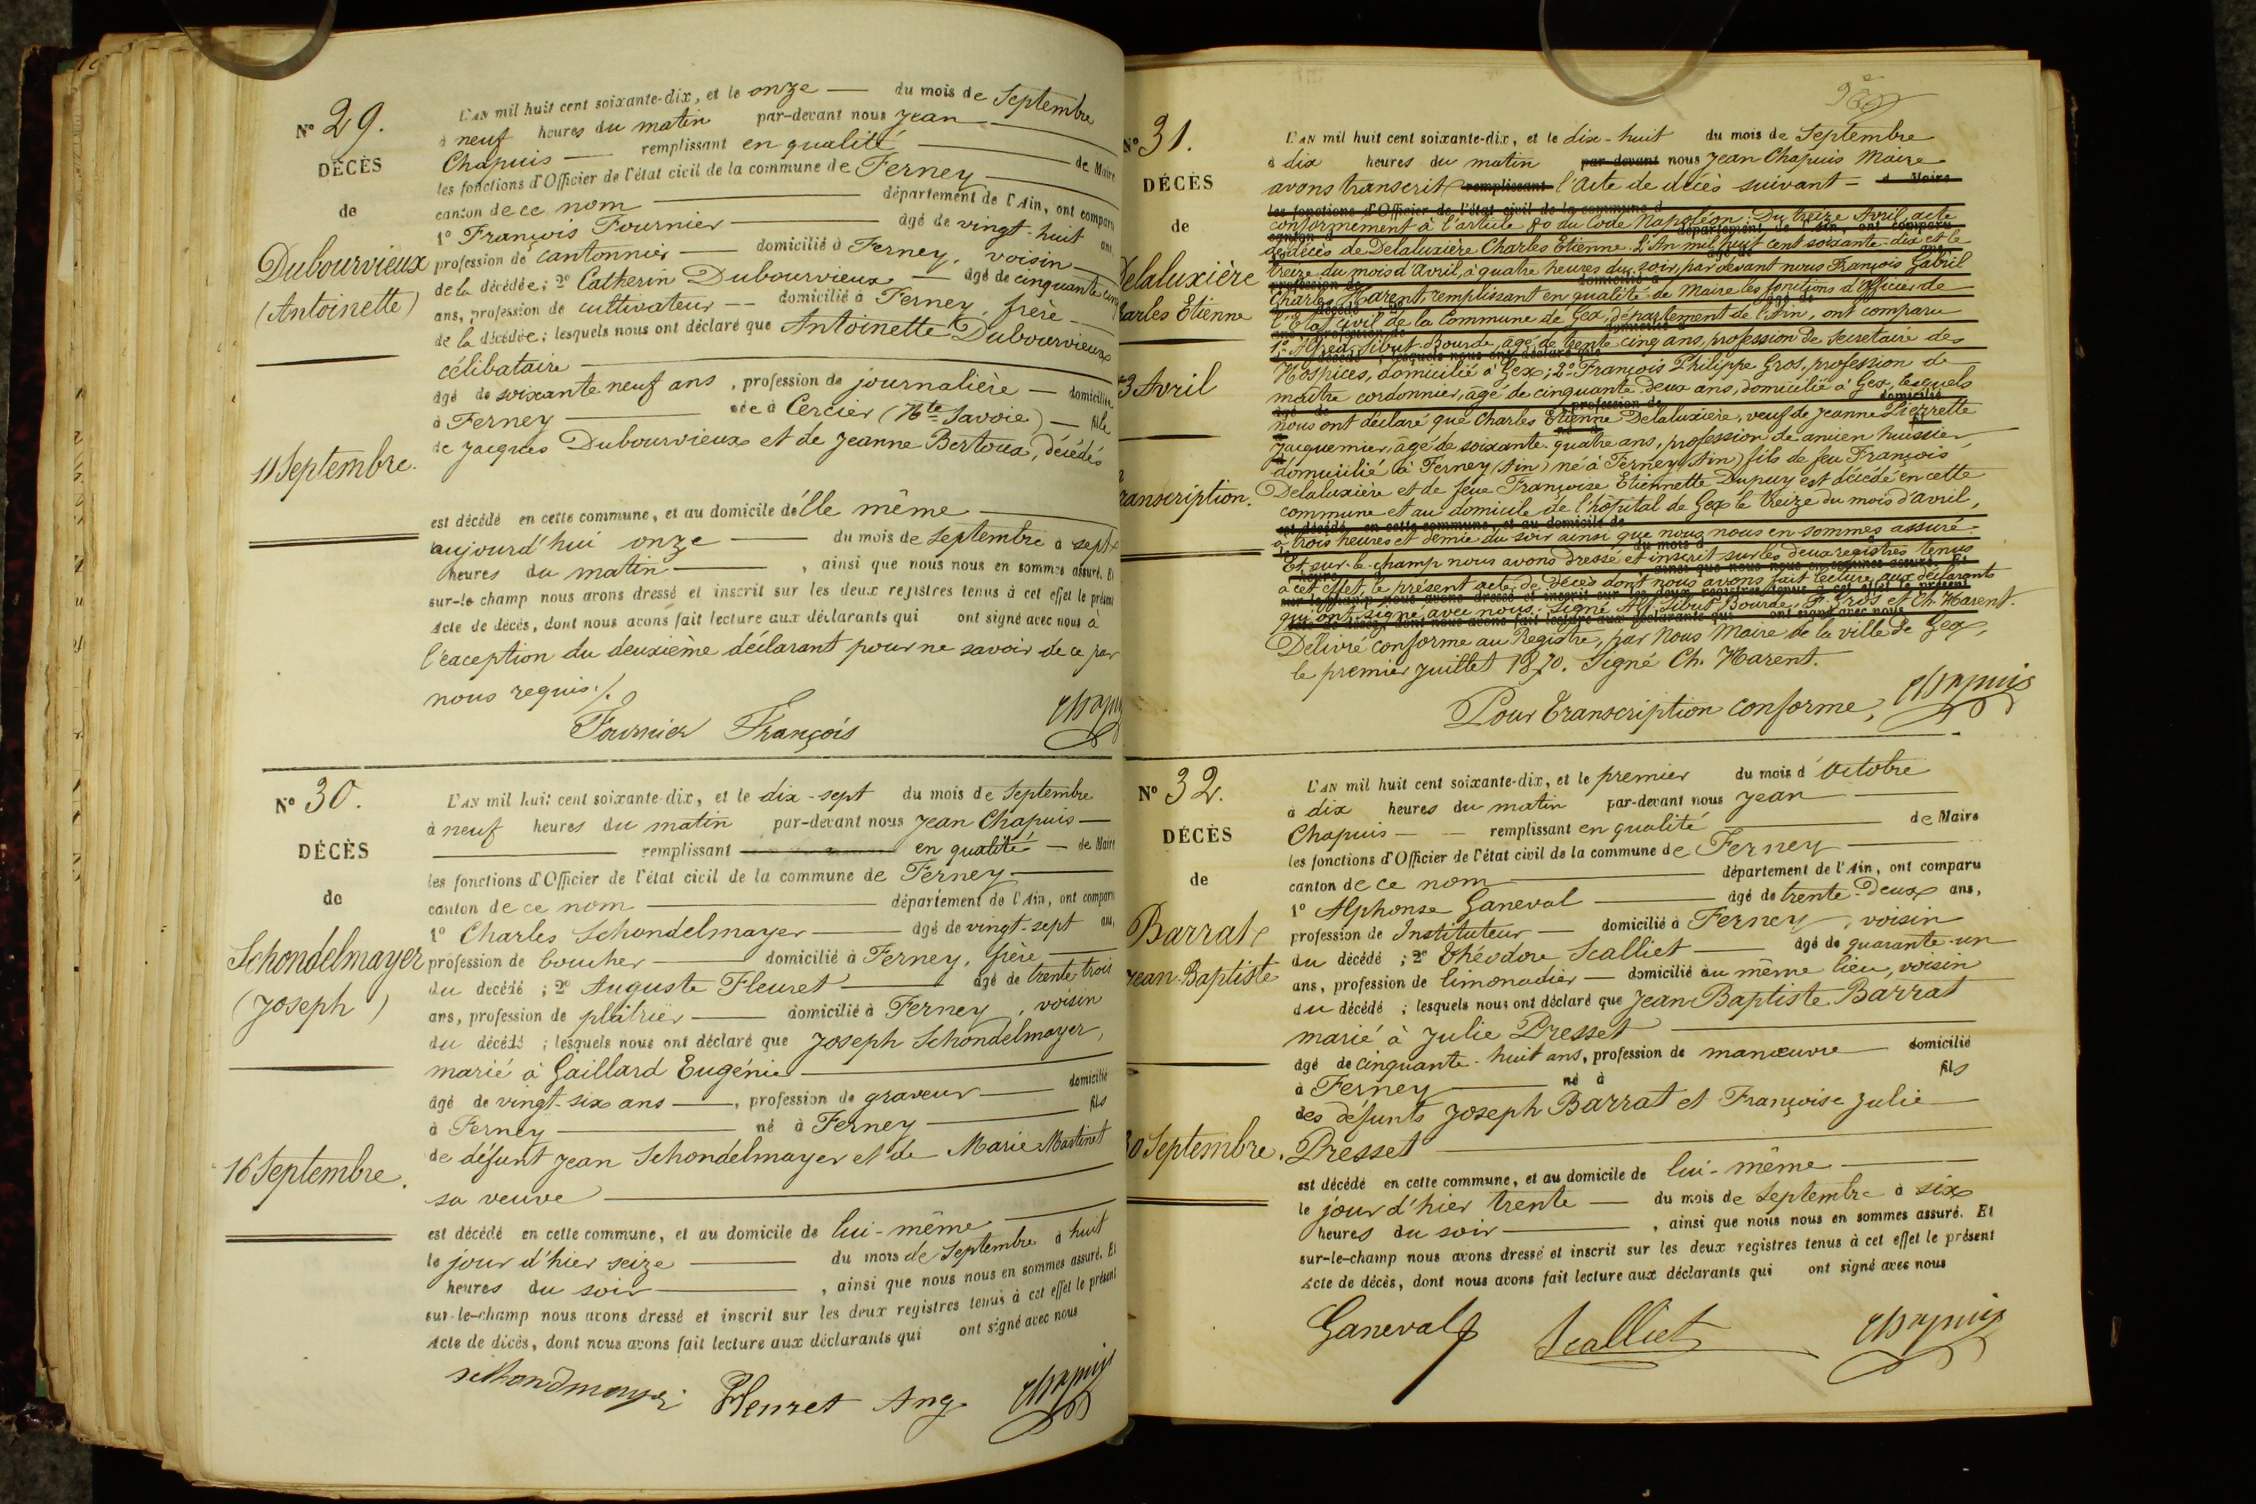 N° 29.
DÉCÈS
de
Dubourvieux
(Antoinette)
11 Septembre.
L'AN mil huit cent soixante-dix, et le onze du mois de Septembre
à neuf heures du matin par-devant nous Jean
Chapuis remplissant en qualité de Maire
les fonctions d'Officier de l'état civil de la commune de Ferney
canton de ce nom département de l'Ain, ont comparu
1° François Fournier âgé de vingt-huit ans
profession de cantonnier domicilié à Ferney, voisin
de la décédée; 2° Catherin Dubourvieux âgé de cinquante cinq
ans, profession de cultivateur domicilié à Ferney, frère
de la décédée; lesquels nous ont déclaré que Antoinette Dubourvieux
célibataire
âgé de soixante neuf ans, profession de journalière domiciliée
à Ferney née à Cercier (Hte Savoie) fille
de Jacques Dubourvieux et de Jeanne Bertoux, décédés
est décédé en cette commune, et au domicile d'elle même
aujourd'hui onze du mois de Septembre à sept
heures du matin, ainsi que nous nous en sommes assuré. Et
sur-le champ nous avons dressé et inscrit sur les deux registres tenus à cet effet le présent
Acte de décès, dont nous avons fait lecture aux déclarants qui ont signé avec nous à
l'exception du deuxième déclarant pour ne savoir de ce par
nous requis./.
Fournier François Chapuis
N° 30.
DÉCÈS
de
Schondelmayer
(Joseph)
16 Septembre.
L'AN mil huit cent soixante-dix, et le dix-sept du mois de Septembre
à neuf heures du matin par-devant nous Jean Chapuis
remplissant en qualité de Maire
les fonctions d'Officier de l'état civil de la commune de Ferney
canton de ce nom département de l'Ain, ont comparu
1° Charles Schondelmayer âgé de vingt-sept ans,
profession de boucher domicilié à Ferney, frère
du décédé; 2° Auguste Fleuret âgé de trente trois
ans, profession de plâtrier domicilié à Ferney, voisin
du décédé; lesquels nous ont déclaré que Joseph Schondelmayer,
marié à Gaillard Eugénie
âgé de vingt-six ans, profession de graveur domicilié
à Ferney né à Ferney fils
de défunt Jean Schondelmayer et de Marie Mastinet
sa veuve
est décédé en cette commune, et au domicile de lui-même
le jour d'hier seize du mois de Septembre à huit
heures du soir, ainsi que nous nous en sommes assuré. Et
sur-le-champ nous avons dressé et inscrit sur les deux registres tenus à cet effet le présent
Acte de décès, dont nous avons fait lecture aux déclarants qui ont signé avec nous
Fleuret Aug. Chapuis
N° 31.
DÉCÈS
de
Delaluxière
Charles Etienne
13 Avril
Transcription.
L'AN mil huit cent soixante-dix, et le dix-huit du mois de Septembre
à dix heures du matin par-devant nous Jean Chapuis Maire
avons transcrit remplissant l'Acte de décès suivant de Maire
conformément à l'article 80 du Code Napoléon: Du treize Avril, acte
de décès de Delaluxière Charles Etienne. L'An mil huit cent soixante-dix et le
treize du mois d'Avril, à quatre heures du soir, par devant nous François Gabriel
Charles Harent, remplissant en qualité de Maire les fonctions d'officier de
l'Etat civil de la Commune de Gex, département de l'Ain, ont comparu
1° Alfred Sibut-Bourde, âgé de trente cinq ans, profession de Secrétaire des
Hospices, domicilié à Gex; 2° François Philippe Gros, profession de
maître cordonnier, âgé de cinquante deux ans, domicilié à Gex, lesquels
nous ont déclaré que Charles Etienne Delaluxière, veuf de Jeanne Pierrette
Jacquemier, âgé de soixante quatre ans, profession de ancien huissier,
domicilié à Ferney (Ain) né à Ferney (Ain) fils de feu François
Delaluxière et de feue Françoise Etiennette Dupuy est décédé en cette
commune et au domicile de l'hôpital de Gex le treize du mois d'avril,
à trois heures et demie du soir ainsi que nous nous en sommes assuré.
Et sur-le-champ nous avons dressé et inscrit sur les deux registres tenus
à cet effet, le présent acte de décès dont nous avons fait lecture aux déclarants
qui ont signé avec nous. Signé Alf. Sibut Bourde, P. Gros et Ch. Harent.
Délivré conforme au Registre, par Nous Maire de la ville de Gex,
le premier Juillet 1870. Signé Ch. Harent.
Pour Transcription conforme, Chapuis
N° 32.
DÉCÈS
de
Barrat
Jean-Baptiste
30 Septembre.
L'AN mil huit cent soixante-dix, et le premier du mois d'Octobre
à dix heures du matin par-devant nous Jean
Chapuis remplissant en qualité de Maire
les fonctions d'Officier de l'état civil de la commune de Ferney
canton de ce nom département de l'Ain, ont comparu
1° Alphonse Ganeval âgé de trente-deux ans,
profession de Instituteur domicilié à Ferney, voisin
du décédé; 2° Théodore Scalliet âgé de quarante-un
ans, profession de limonadier domicilié au même lieu, voisin
du décédé; lesquels nous ont déclaré que Jean Baptiste Barrat
marié à Julie Dresset
âgé de cinquante-huit ans, profession de manœuvre domicilié
à Ferney né à fils
des défunts Joseph Barrat et Françoise Julie
Dresset
est décédé en cette commune, et au domicile de lui-même
le jour d'hier trente du mois de Septembre à six
heures du soir, ainsi que nous nous en sommes assuré. Et
sur-le-champ nous avons dressé et inscrit sur les deux registres tenus à cet effet le présent
Acte de décès, dont nous avons fait lecture aux déclarants qui ont signé avec nous
Ganeval Scalliet Chapuis